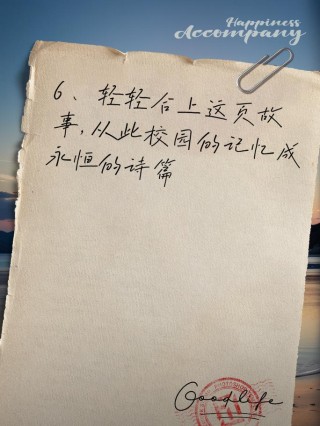 Happiness
Accompany
6、轻轻合上这页故
事，从此校园的记忆成
永恒的诗篇
Goodlife